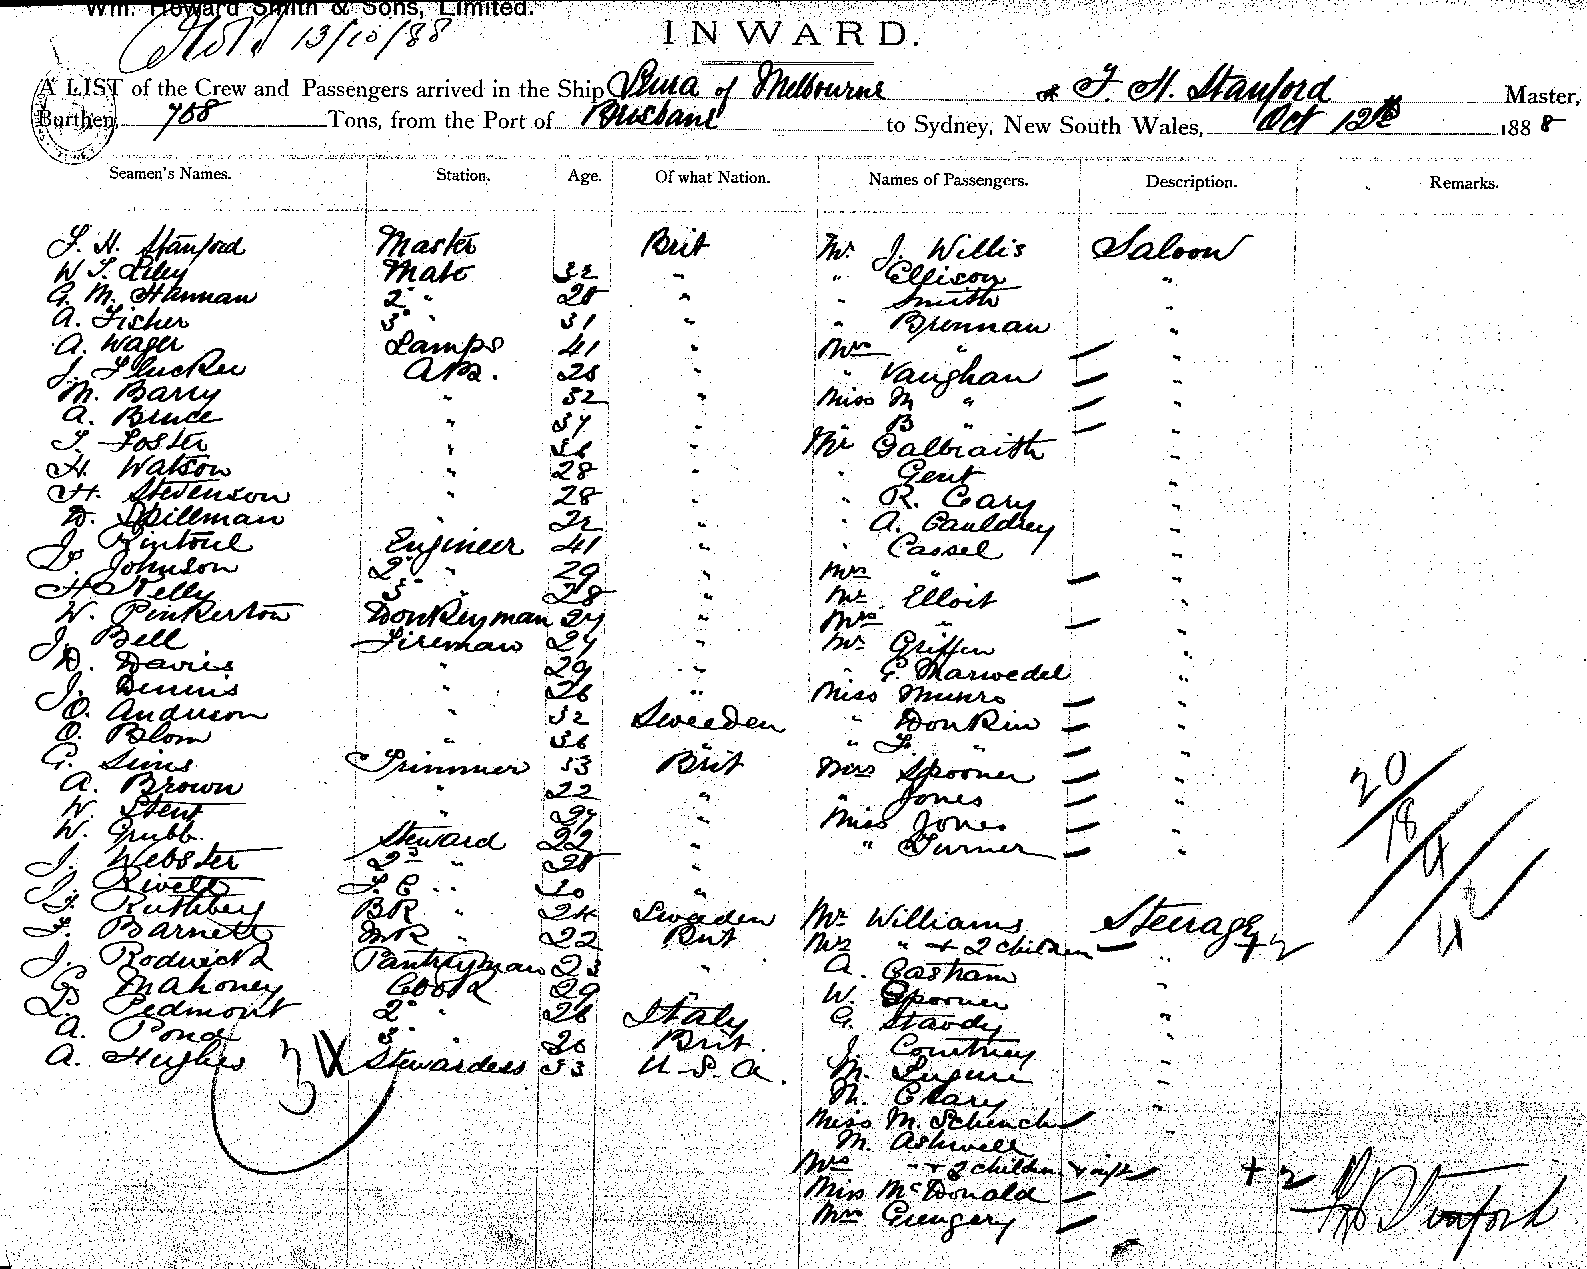 Wm. Howard Smith & Sons, Limited.
13/10/88
INWARD.
A LIST of the Crew and Passengers arrived in the Ship of Melbourne F. H. Stanford Master,
Burthen, 768 Tons, from the Port of Brisbane to Sydney, New South Wales, Oct 12th 1888
Seamen's Names. Station. Age. Of what Nation. Names of Passengers. Description. Remarks.
F. H. Stanford Master Brit Mr. J. Willis Saloon
W Liley Mate 32 " " Ellison "
G. M. Hannan 2 " 28 " " Smith "
A. Fisher 3 " 31 " " Brennan "
A. Wager Lamps 41 " Mrs " "
J. A.B. 28 " " Vaughan "
M. Barry " 32 " Miss M " "
A. Bruce " 37 " " B " "
T. Foster " 36 " Mr Galbraith "
H. Watson " 28 " " Gent "
H. Stevenson " 28 " " R. Cary "
D. Spillman " 22 " " A. Cauldrey "
J. Rintoul Engineer 41 " " Cassel "
Johnson 2 " 29 " Mrs " "
H Kelly 3 " 28 " Mr. Elloit "
W. Pinkerton Donkeyman 27 " Mrs " "
J. Bell Fireman 27 " Mr Griffin "
D. Davies " 29 " " Marwedel "
J. Dennis " 26 " Miss Munro "
O. Anderson " 32 Sweeden " Donkin "
O. Blom " 36 " " "
G. Sims Trimmer 53 Brit Mrs Spooner "
A. Brown " 22 " " Jones "
W. Stent " 27 " Miss Jones "
W. Grubb Steward 22 " " Turner "
J. Webster 2 " 28 "
J. Rivett 30 "
Ruthberg BR " 24 Sweden Mr Williams Steerage
F. Barnett MR " 22 Brit Mrs " + 2 children +2
J. Rodwick Pantryman 23 " A. Gasham "
C. Mahoney Cook 29 W. Spooner "
Pedmont 2 " 26 Italy G. Standy "
A. Pond 3 " 20 Brit. J. Courtney "
A. Hughes Stewardess 33 U.S.A. M. "
M. Cleary "
Miss M. Schench
M. Ashwell
Mrs " + 2 children + +2
Miss McDonald
Mrs
20
18
4
42
34
Stanford